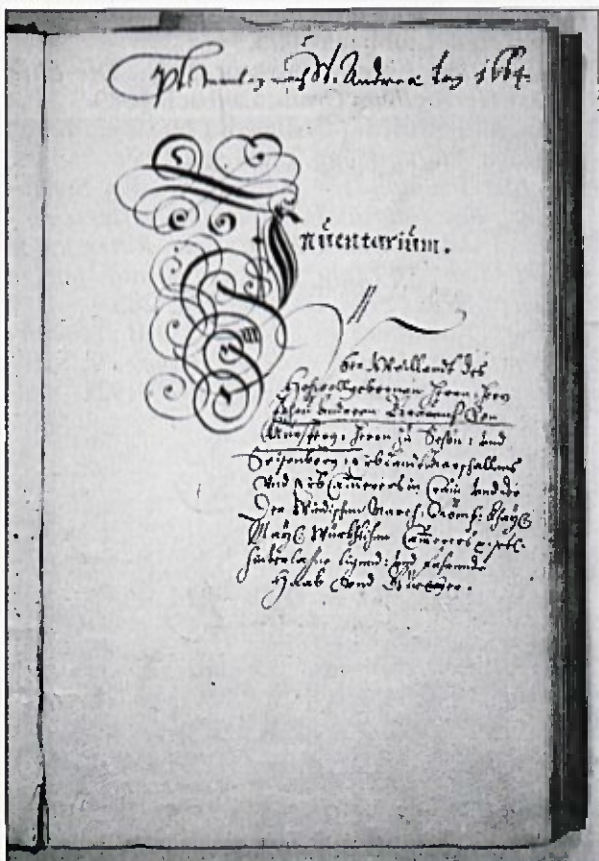 nach St. Andreæ tag 1664.
Inuentarium.
Weillandt des
Hochwollgebornen Herrn, Herrn
Von
Aursperg, Herrn zu Schön: und
Seisenberg, Erblandtmarschallens
Vnd Erb Cam̄erers in Crain vnd der
Der Windischen March, Khay:
May: Würckhlichen Cam̄erers p. seel:
hinterlasne ligend: vnd fahrende
Haab vnd Güetter.